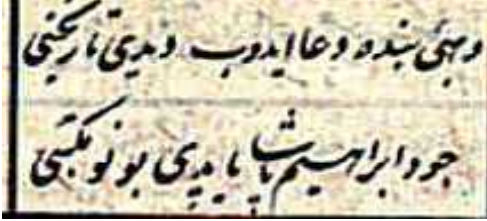 وهبئ بنده دعا ایدوب دیدی تاریخنی
جود ابراهیم پاشا یاپدی بو نو مکتبی